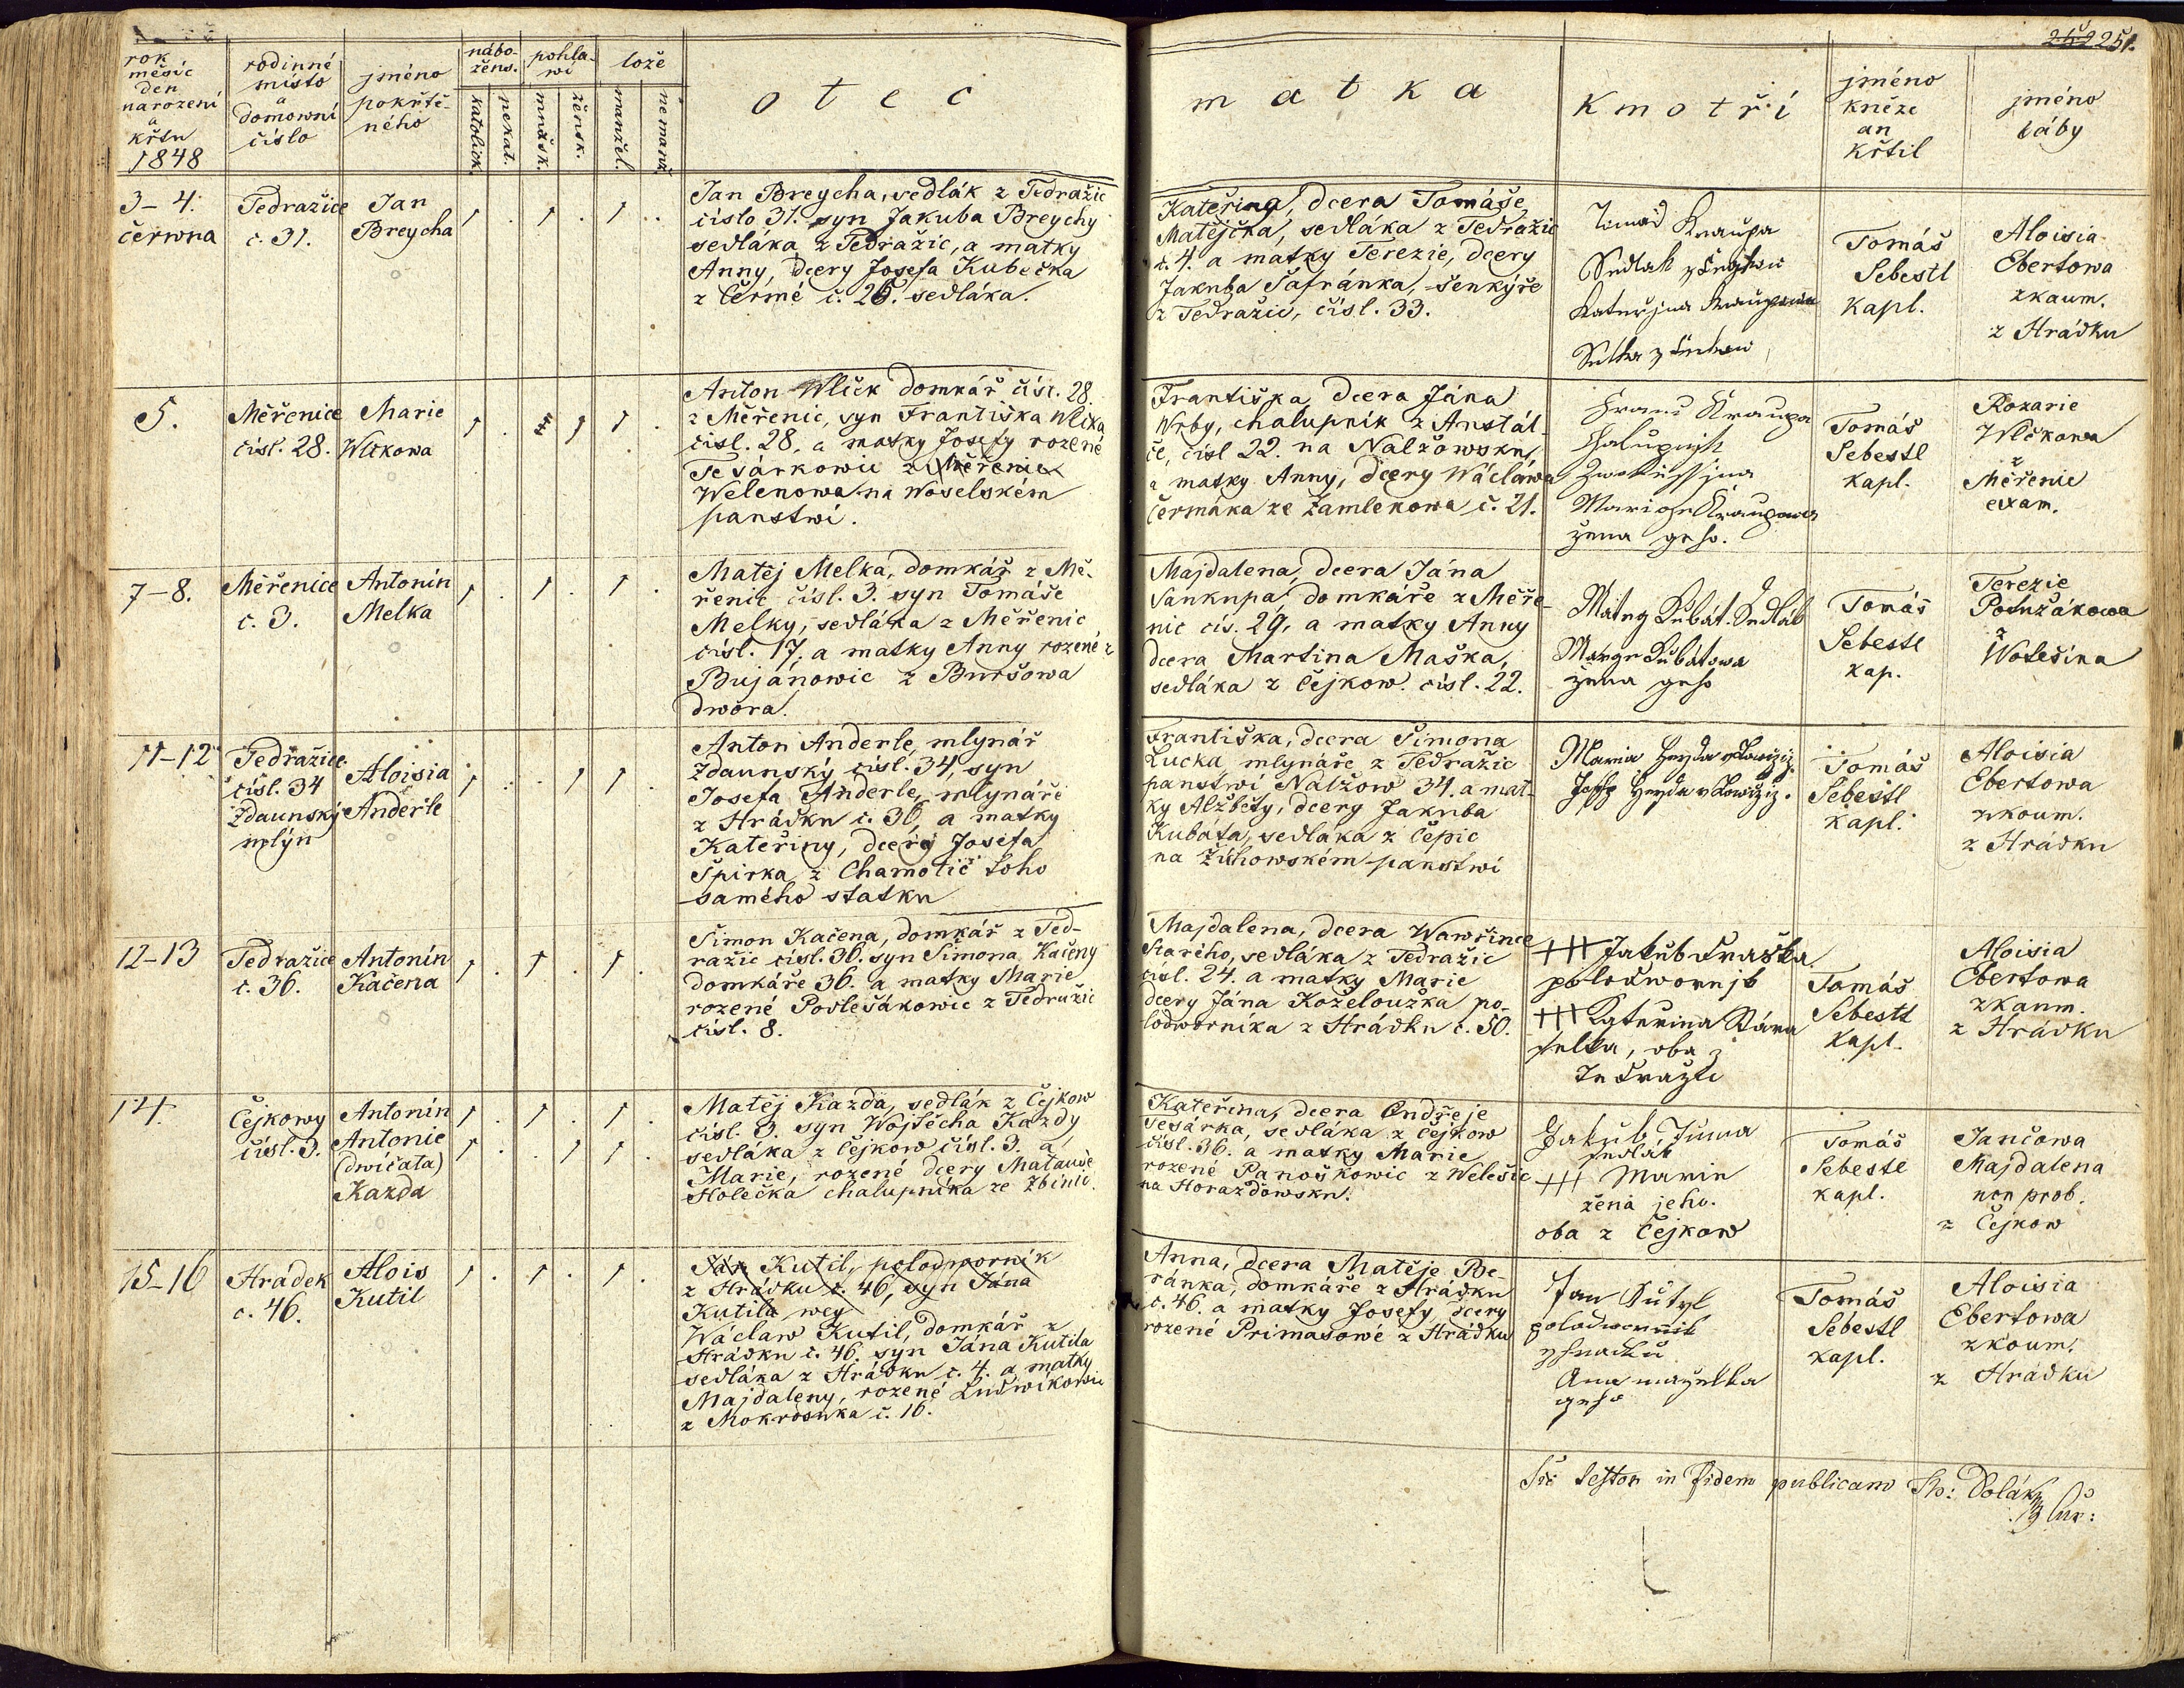 251.
rok
měsíc
den
narození
a
křtu
1848
rodinné
místo
a
domowní
číslo
jméno
pokřtě-
ného
nábo-
žens.
katolick.
nekat.
pohla-
wí
mužsk.
žensk.
lože
manžel.
nemanž.
otec
matka
Kmotři
jméno
kněze
an
křtil
jméno
báby
3-4.
čerwna
Tedražice
č. 31.
Jan
Breycha
Jan Breycha, sedlák z Tedražic
číslo 31. syn Jakuba Breychy
sedláka z Tedražic, a matky
Anny, dcery Josefa Kubečka
z Čermé č. 26. sedláka.
Kateřina, dcera Tomáše
Matějčka, sedláka z Tedražic
č. 4. a matky Terezie, dcery
Jakuba Šafránka, šenkýře
z Tedražic, čísl. 33.
Kraupa
Tomáš
Sebestl
kapl.
Aloisia
Ebertowa
zkaum.
z Hrádku
5.
Měřenice
čísl. 28.
Marie
Wlčkowa
Anton Wlček domkář čísl. 28.
z Měřenic, syn Františka Wlčka
čísl. 28, a matky Josefy rozené
Tesárkowic z Měřenic
Welenowa na Woselském
panstwí.
Františka dcera Jána
Wrby, chalupník z Anstál-
če, čísl 22. na Nalžowsku,
a matky Anny, dcery Wácława
Čermáka ze Žamlekowa č. 21.
Franc Kraupa
Chalupnik
Marige Kraupowa
žena geho.
Tomáš
Sebestl
kapl.
Rozarie
Wlčkowa
z
Měřenic
exam.
7-8.
Měřenice
č. 3.
Antonín
Melka
Matěj Melka, domkář z Mě-
řenic čísl. 3. syn Tomáše
Melky, sedláka z Měřenic
čísl. 17. a matky Anny rozené z
Bujánowic z Buršowa
dwora.
Majdalena, dcera Jána
Sankupa domkáře z Měře-
nic čís. 29, a matky Anny
dcera Martina Maška,
sedláka z Čejkow. čísl. 22.
Mateg Kubát. Sedlák
Margr Kubátowa
žena geho
Tomáš
Sebestl
kap.
Terezie
Potužákowa
z
Wolešína
11-12
Tedražice
čísl. 34
Zdaunský
mlýn
Aloisia
Anderle
Anton Anderle, mlynář
Zdaunský čísl. 34, syn
Josefa Anderle, mlynáře
z Hrádku č. 36, a matky
Kateřiny, dcery Josefa
Špirka z Chamotic toho
samého statku
Františka, dcera Šimona
Łucka mlynáře z Tedražic
panstwí Nalžow 34. a mat-
ky Alžběty, dcery Jakuba
Kubáta, sedláka z Čepic
na Žichowském panstwí
Tomáš
Sebestl
kapl.
Aloisia
Ebertowa
zkoum.
z Hrádku
12-13
Tedražice
č. 36.
Antonín
Kačena
Šimon Kačena, domkář z Ted-
ražic čísl. 36. syn Šimona Kačeny
domkáře 36. a matky Marie
rozené Podlešákowic z Tedražic
čísl. 8.
Majdalena, dcera Wawřince
Starého, sedláka z Tedražic
čísl. 24. a matky Marie
dcery Jána Koželoužka po-
lodworníka z Hrádku č. 50.
+++ Jakub
polodwornjk
+++ Kateřina Stára
selka, oba z
Tedražic
Tomáš
Sebestl
kapl.
Aloisia
Ebertowa
zkaum.
z Hrádku
14.
Čejkowy
čísl. 3.
Antonín
Antonie
(dwičata)
Kazda
Matěj Kazda, sedlák z Čejkow
čísl. 3. syn Wojtěcha Kazdy
sedláka z Čejkow čísl. 3. a
Marie, rozené dcery Matauše
Holečka chalupníka ze Zbinic.
Kateřina, dcera Ondřeje
Tesárka, sedláka z Čejkow
čísl. 36. a matky Marie
rozené Panoškowic z Welešic
na Horazdowsku.
Jakub Tuma
sedlák
+++ Marie
žena jeho.
oba z Čejkow
Tomáš
Sebestl
kapl.
Jančowa
Majdalena
non prob.
z Čejkow
15-16
Hrádek
č. 46.
Alois
Kutil
Ján Kutil, polodworník
z Hrádku č. 46, syn Jána
Kutila wey
Wáclaw Kutil, domkář z
Hrádku č. 46. syn Jána Kutila
sedláka z Hrádku č. 4. a matky
Majdaleny, rozené Ludwíkowic
z Mokrosuka č. 16.
Anna, dcera Matěje Be-
ránka, domkáře z Hrádku
č. 46. a matky Josefy, dcery
rozené Primasowé z Hrádku
Jan Kutyl
polodwornik
z Hradku
Ana manželka
geho
Tomáš
Sebestl
kapl.
Aloisia
Ebertowa
zkoum.
z Hrádku
Sic testor in fidem publicam